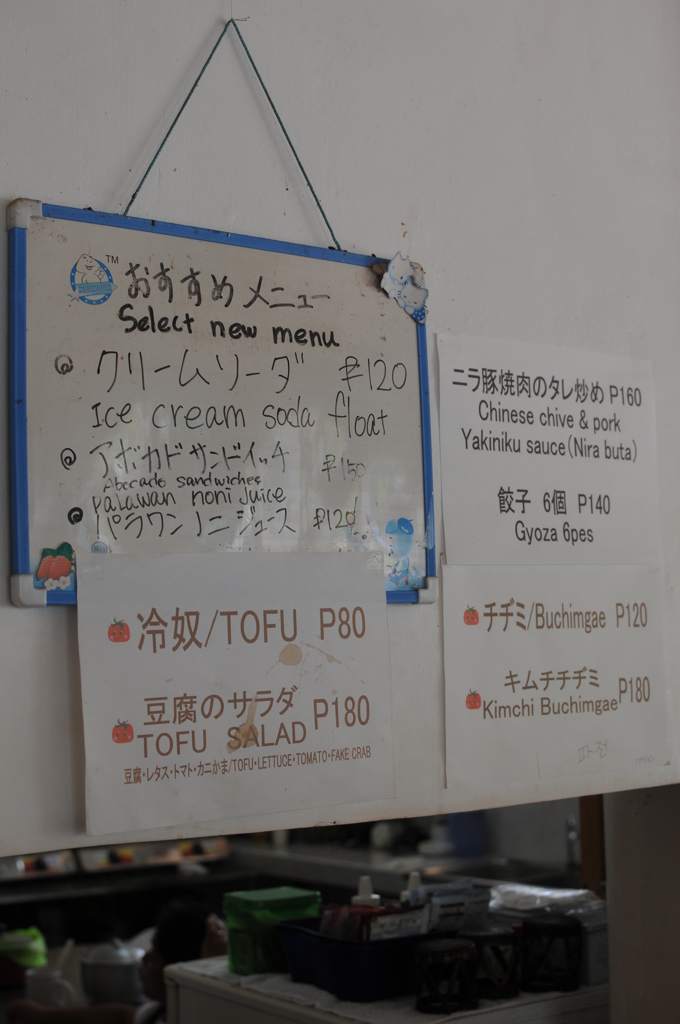 TM
おすすめメニュー
Select new menu
クリームソーダ ₱120
Ice cream soda float
アボカドサンドイッチ ₱150
Abocado sandwiches
palawan noni juice
パラワンノニジュース ₱120
冷奴/TOFU P80
豆腐のサラダ
TOFU SALAD P180
豆腐・レタス・トマト・カニかま/TOFU・LETTUCE・TOMATO・FAKE CRAB
ニラ豚焼肉のタレ炒め P160
Chinese chive & pork
Yakiniku sauce(Nira buta)
餃子 6個 P140
Gyoza 6pes
チヂミ/Buchimgae P120
キムチチヂミ
Kimchi Buchimgae P180
파전